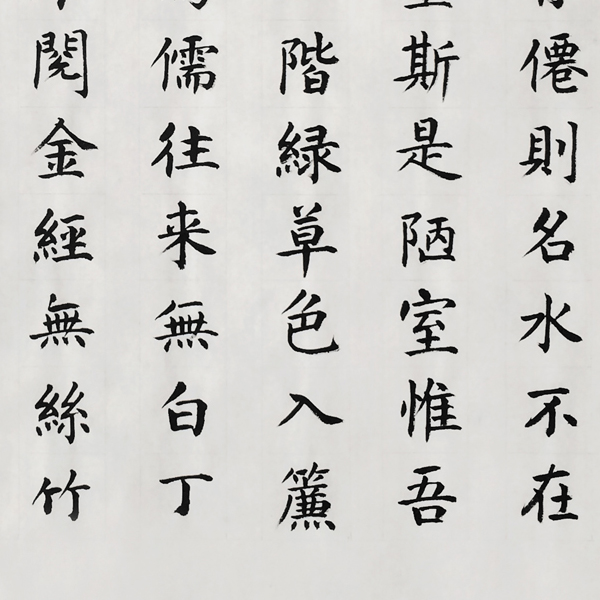 僊則名水不在
斯是陋室惟吾
階緑草色入簾
儒往来無白丁
閲金經無絲竹